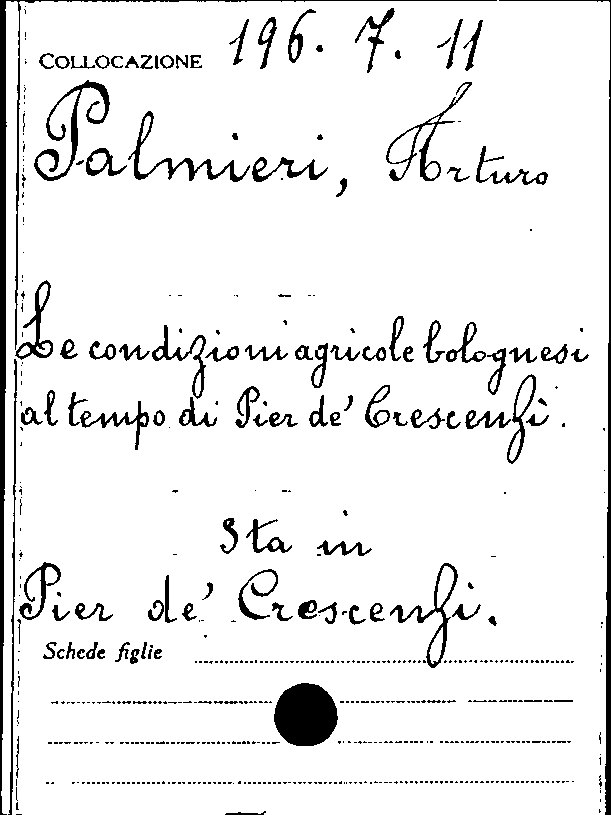 COLLOCAZIONE 196. 7. 11
Palmieri, Arturo
Le condizioni agricole bolognesi
al tempo di Pier de' Crescenzi.
Sta in
Pier de' Crescenzi.
Schede figlie